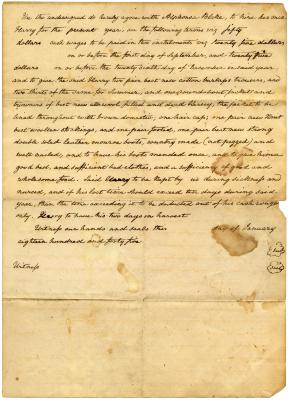 We the undersigned do hereby agree with Alphonso Blake, to hire his man
Henry for the present year, on the following terms viz fifty
dollars cash wages to be paid in two instalments viz twenty five dollars
on or before the first day of September, and twenty five
dollars on or before the twenty fifth day of December in said year
and to give the said Henry two pair best new cotton trowsers, and
two shirts of the same for summer, and one roundabout jacket and
trowsers of best new all wool filled and dyed the jacket to be
lined throughout with brown domestic, one hair cap; one pair new
best woollen stockings, and one pair footed, one pair best new strong
double soled leather boots, (not pegged) and
well nailed, and to have his boots mended once, and to give him a
good bed, and sufficient bed clothes, and a sufficiency of good and
wholesome food. Said Henry to be kept by us during sickness and
nursed, and if his lost time should exceed ten days during said
year, then the time exceeding it to be deducted out of his cash wages
only. Henry to have his two days in harvest
Witness our hands and seals this day of January
eighteen hundred and forty five
Seal
Witness
Seal